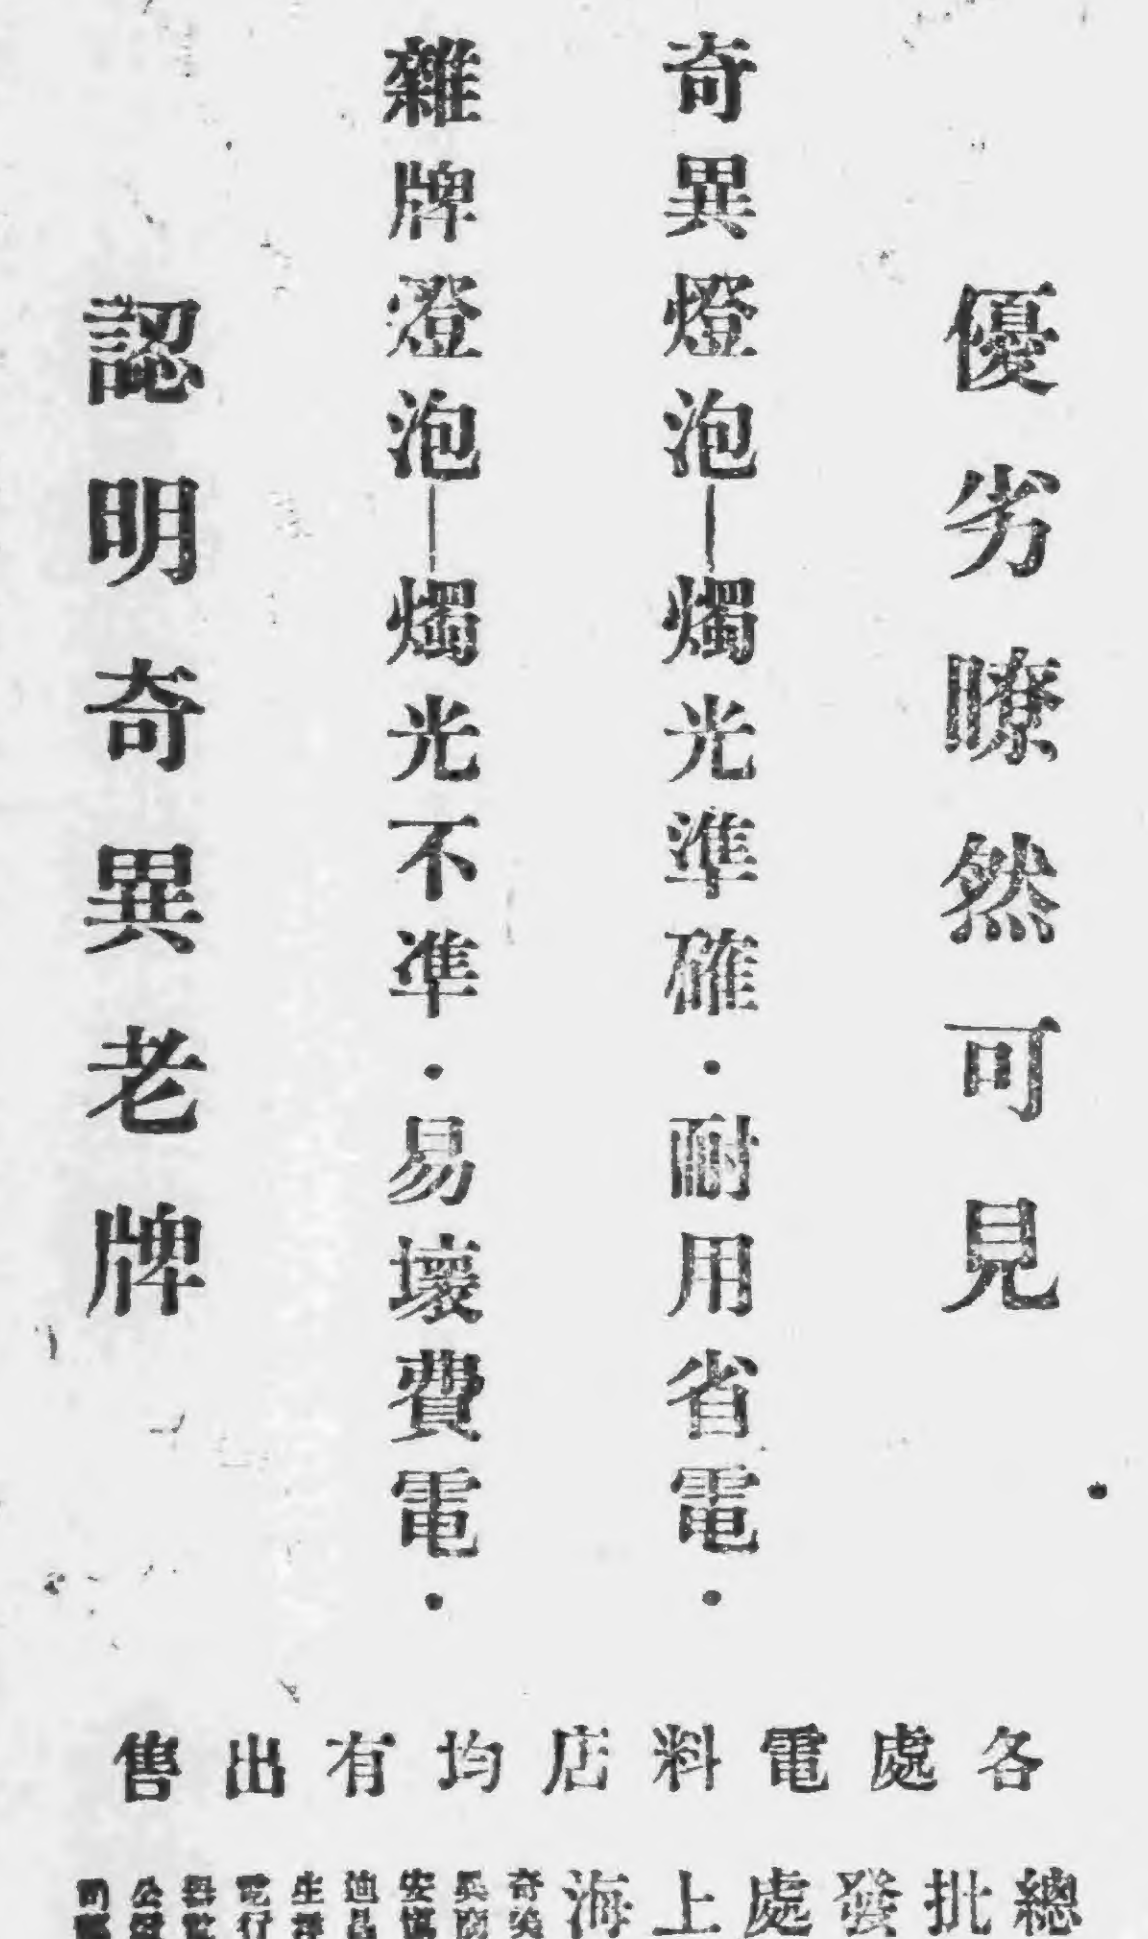 優劣瞭然可見
奇異燈泡—燭光準確．耐用省電．
雜牌燈泡—燭光不準．易壞費電．
認明奇異老牌
各處電料店均有出售
總批發處上海